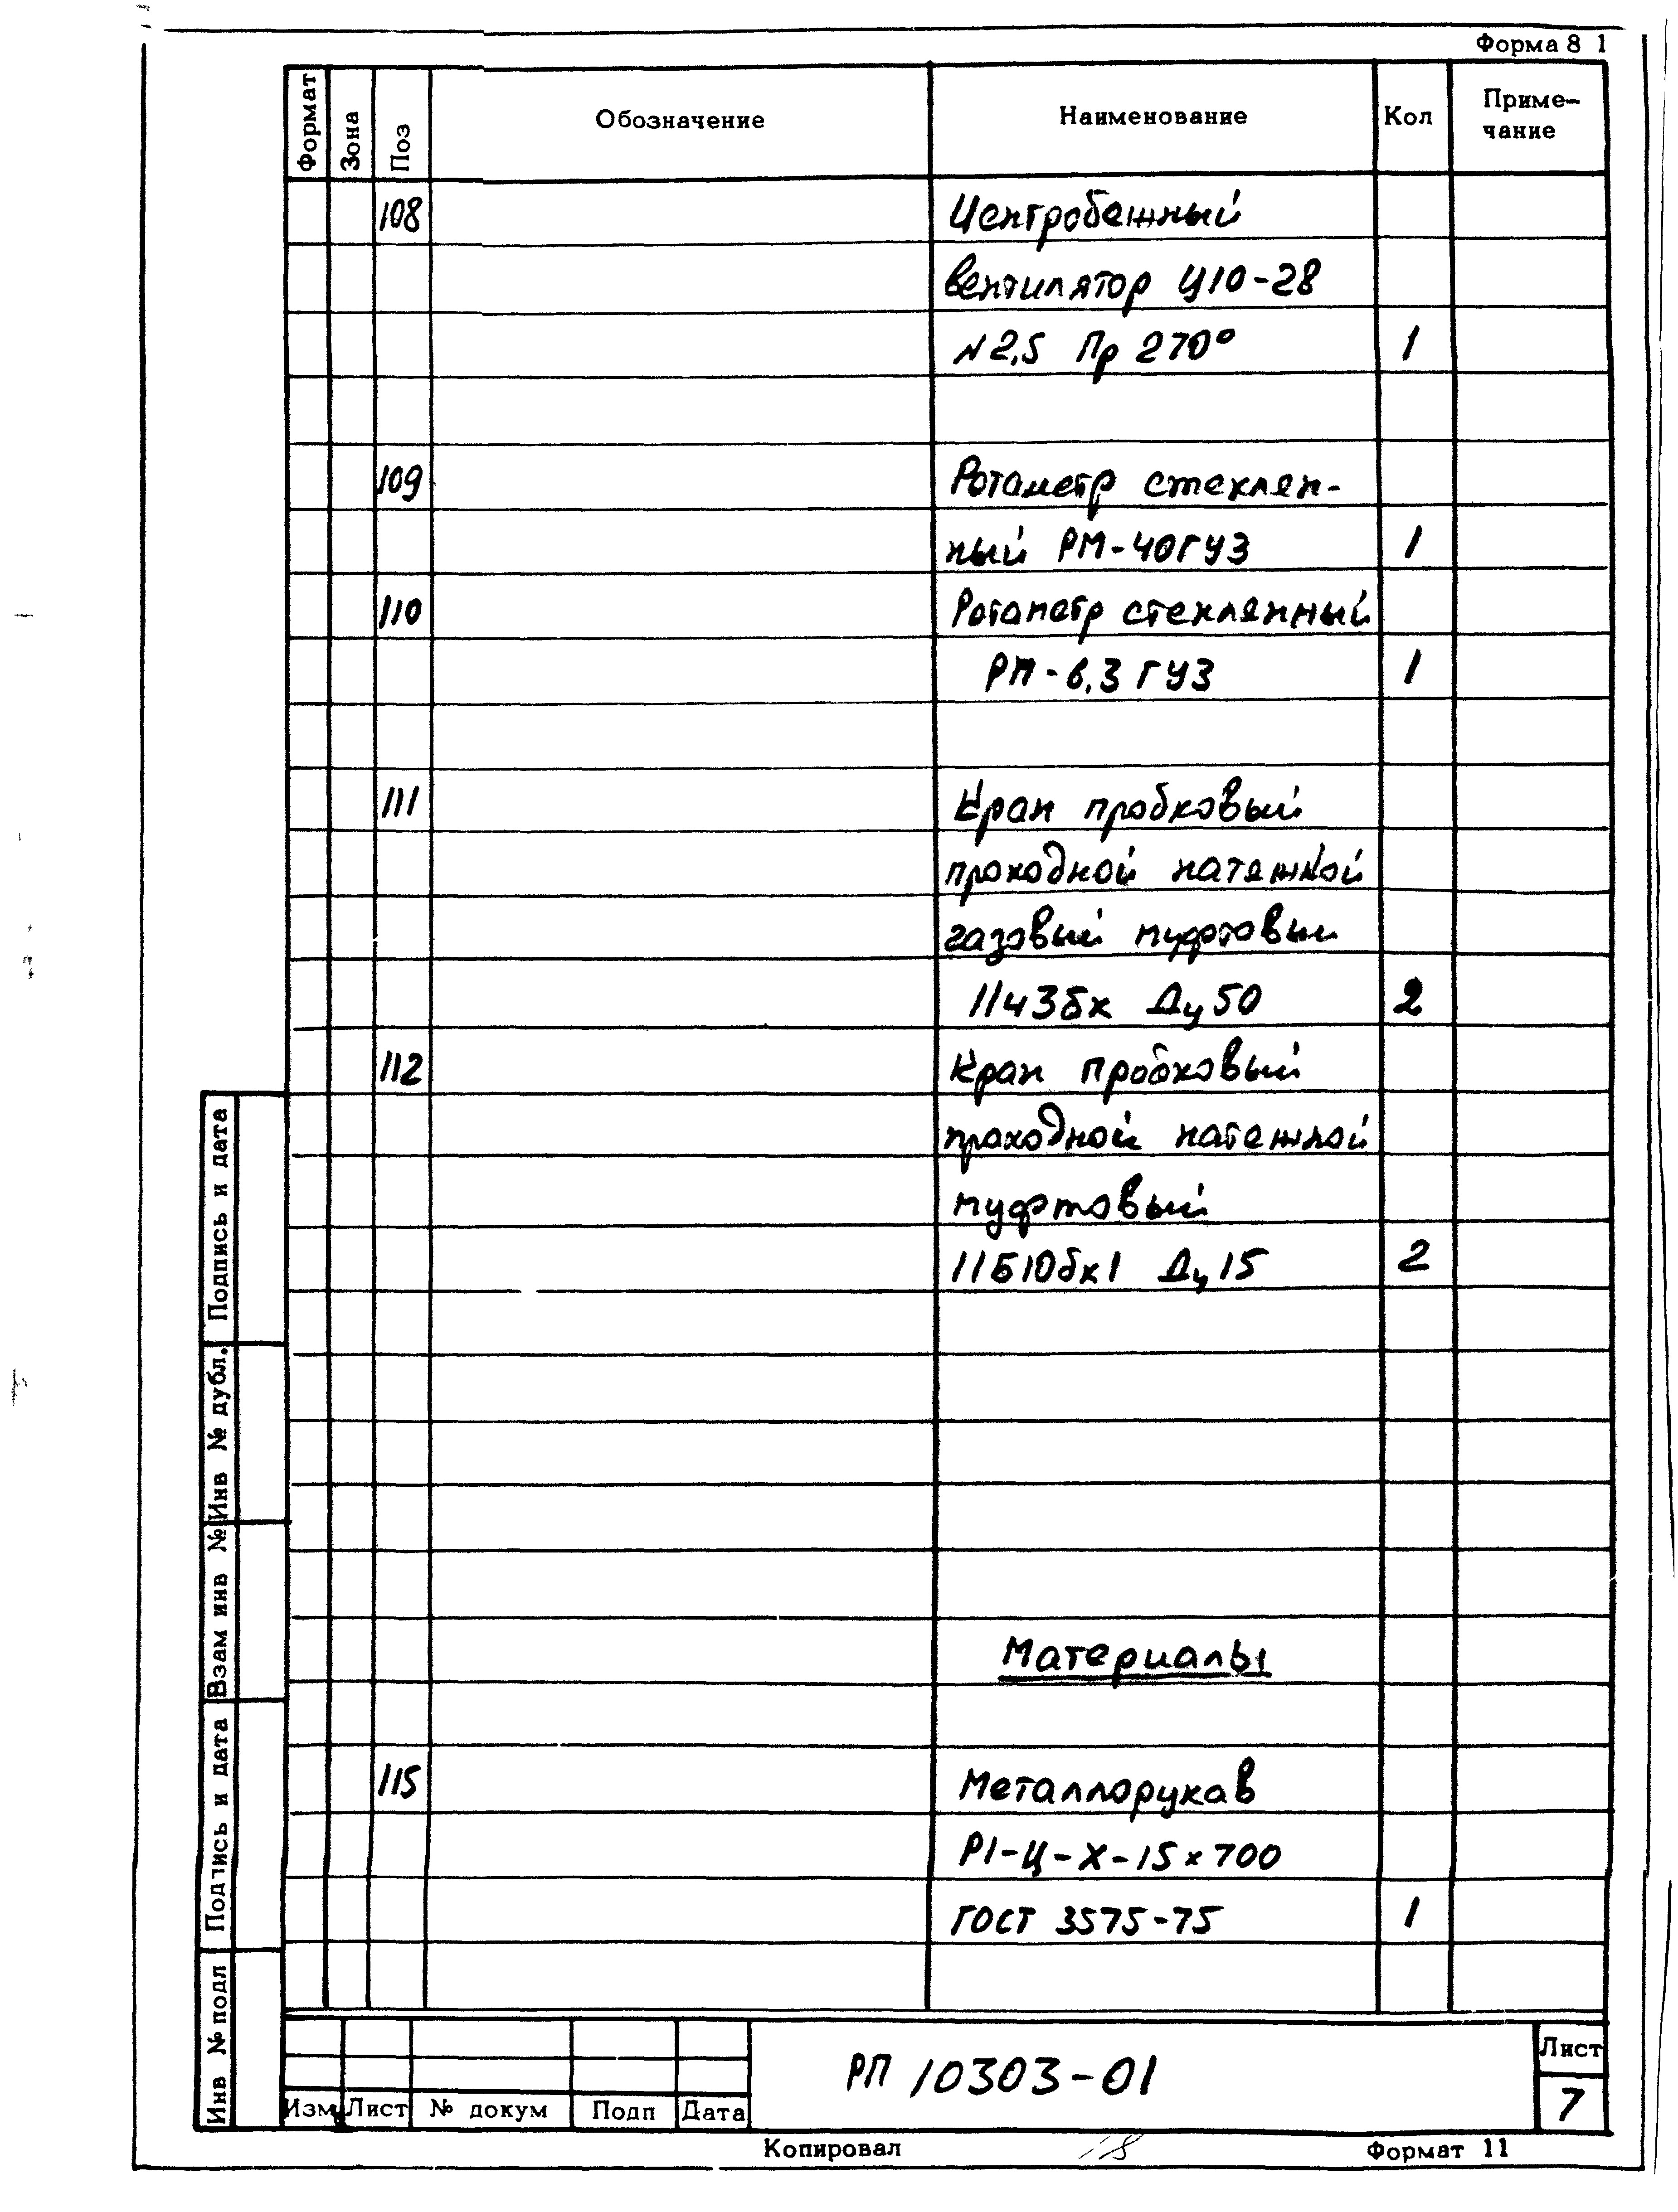 Форма 8 1
Формат Зона Поз Обозначение Наименование Кол Приме-
чание
108 Центробежный
вентилятор Ц10-28
N2,5 Пр 270° 1
109 Ротаметр стеклян-
ный РМ-40ГУЗ 1
110 Ротаметр стеклянный
РМ-6,3 ГУЗ 1
111 Кран пробковый
проходной натяжной
газовый муфтовый
11ч3бк Ду50 2
112 Кран пробковый
проходной натяжной
муфтовый
11Б10бк1 Ду15 2
Материалы
115 Металлорукав
Р1-Ц-Х-15×700
ГОСТ 3575-75 1
Подпись и дата
Инв № дубл.
Взам инв №
Подпись и дата
Инв № подл
Изм Лист № докум Подп Дата
РП 10303-01
Лист
7
Копировал
18
Формат 11